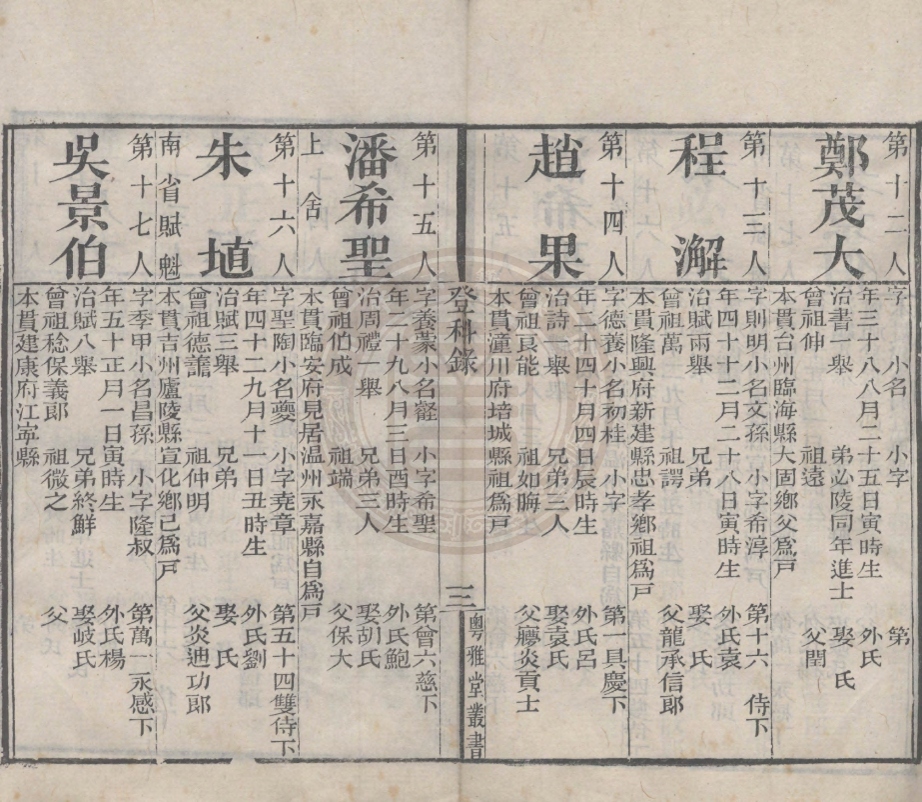 第十二人
鄭茂大
字 小名 小字 第
年三十八八月二十五日寅時生 外氏
治書一舉 弟必陵同年進士 娶 氏
曾祖伸 祖遠 父閏
本貫台州臨海縣大固鄉父爲戸
第十三人
程澥
字則明小名文孫 小字希淳 第十六 侍下
年四十十二月二十八日寅時生 外氏袁
治賦兩舉 兄弟 娶 氏
曾祖萬 祖諤 父龍承信郎
本貫隆興府新建縣忠孝鄉祖爲戸
第十四人
趙果
字德養小名初桂 小字 第一具慶下
年二十四十月四日辰時生 外氏呂
治詩一舉 兄弟三人 娶袁氏
曾祖良能 祖如晦 父艨炎貢士
本貫潼川府培城縣祖爲戸
登科錄
三
粵雅堂叢書
第十五人
潘希聖
上舍
字養蒙小名 小字希聖 第會六慈下
年二十九八月三日酉時生 外氏鮑
治周禮一舉 兄弟三人 娶胡氏
曾祖伯成 祖端 父保大
本貫臨安府見居温州永嘉縣自爲戸
第十六人
朱埴
南省賦魁
字聖陶小名夔 小字堯章 第五十四雙侍下
年四十二九月十一日丑時生 外氏劉
治賦三舉 兄弟 娶 氏
曾祖德 祖仲明 父炎迪功郎
本貫吉州廬陵縣宣化鄉己爲戸
第十七人
吳景伯
字季甲小名昌孫 小字隆叔 第萬一永感下
年五十正月一日寅時生 外氏楊
治賦八舉 兄弟終鮮 娶岐氏
曾祖稔保義郎 祖微之 父
本貫建康府江寧縣